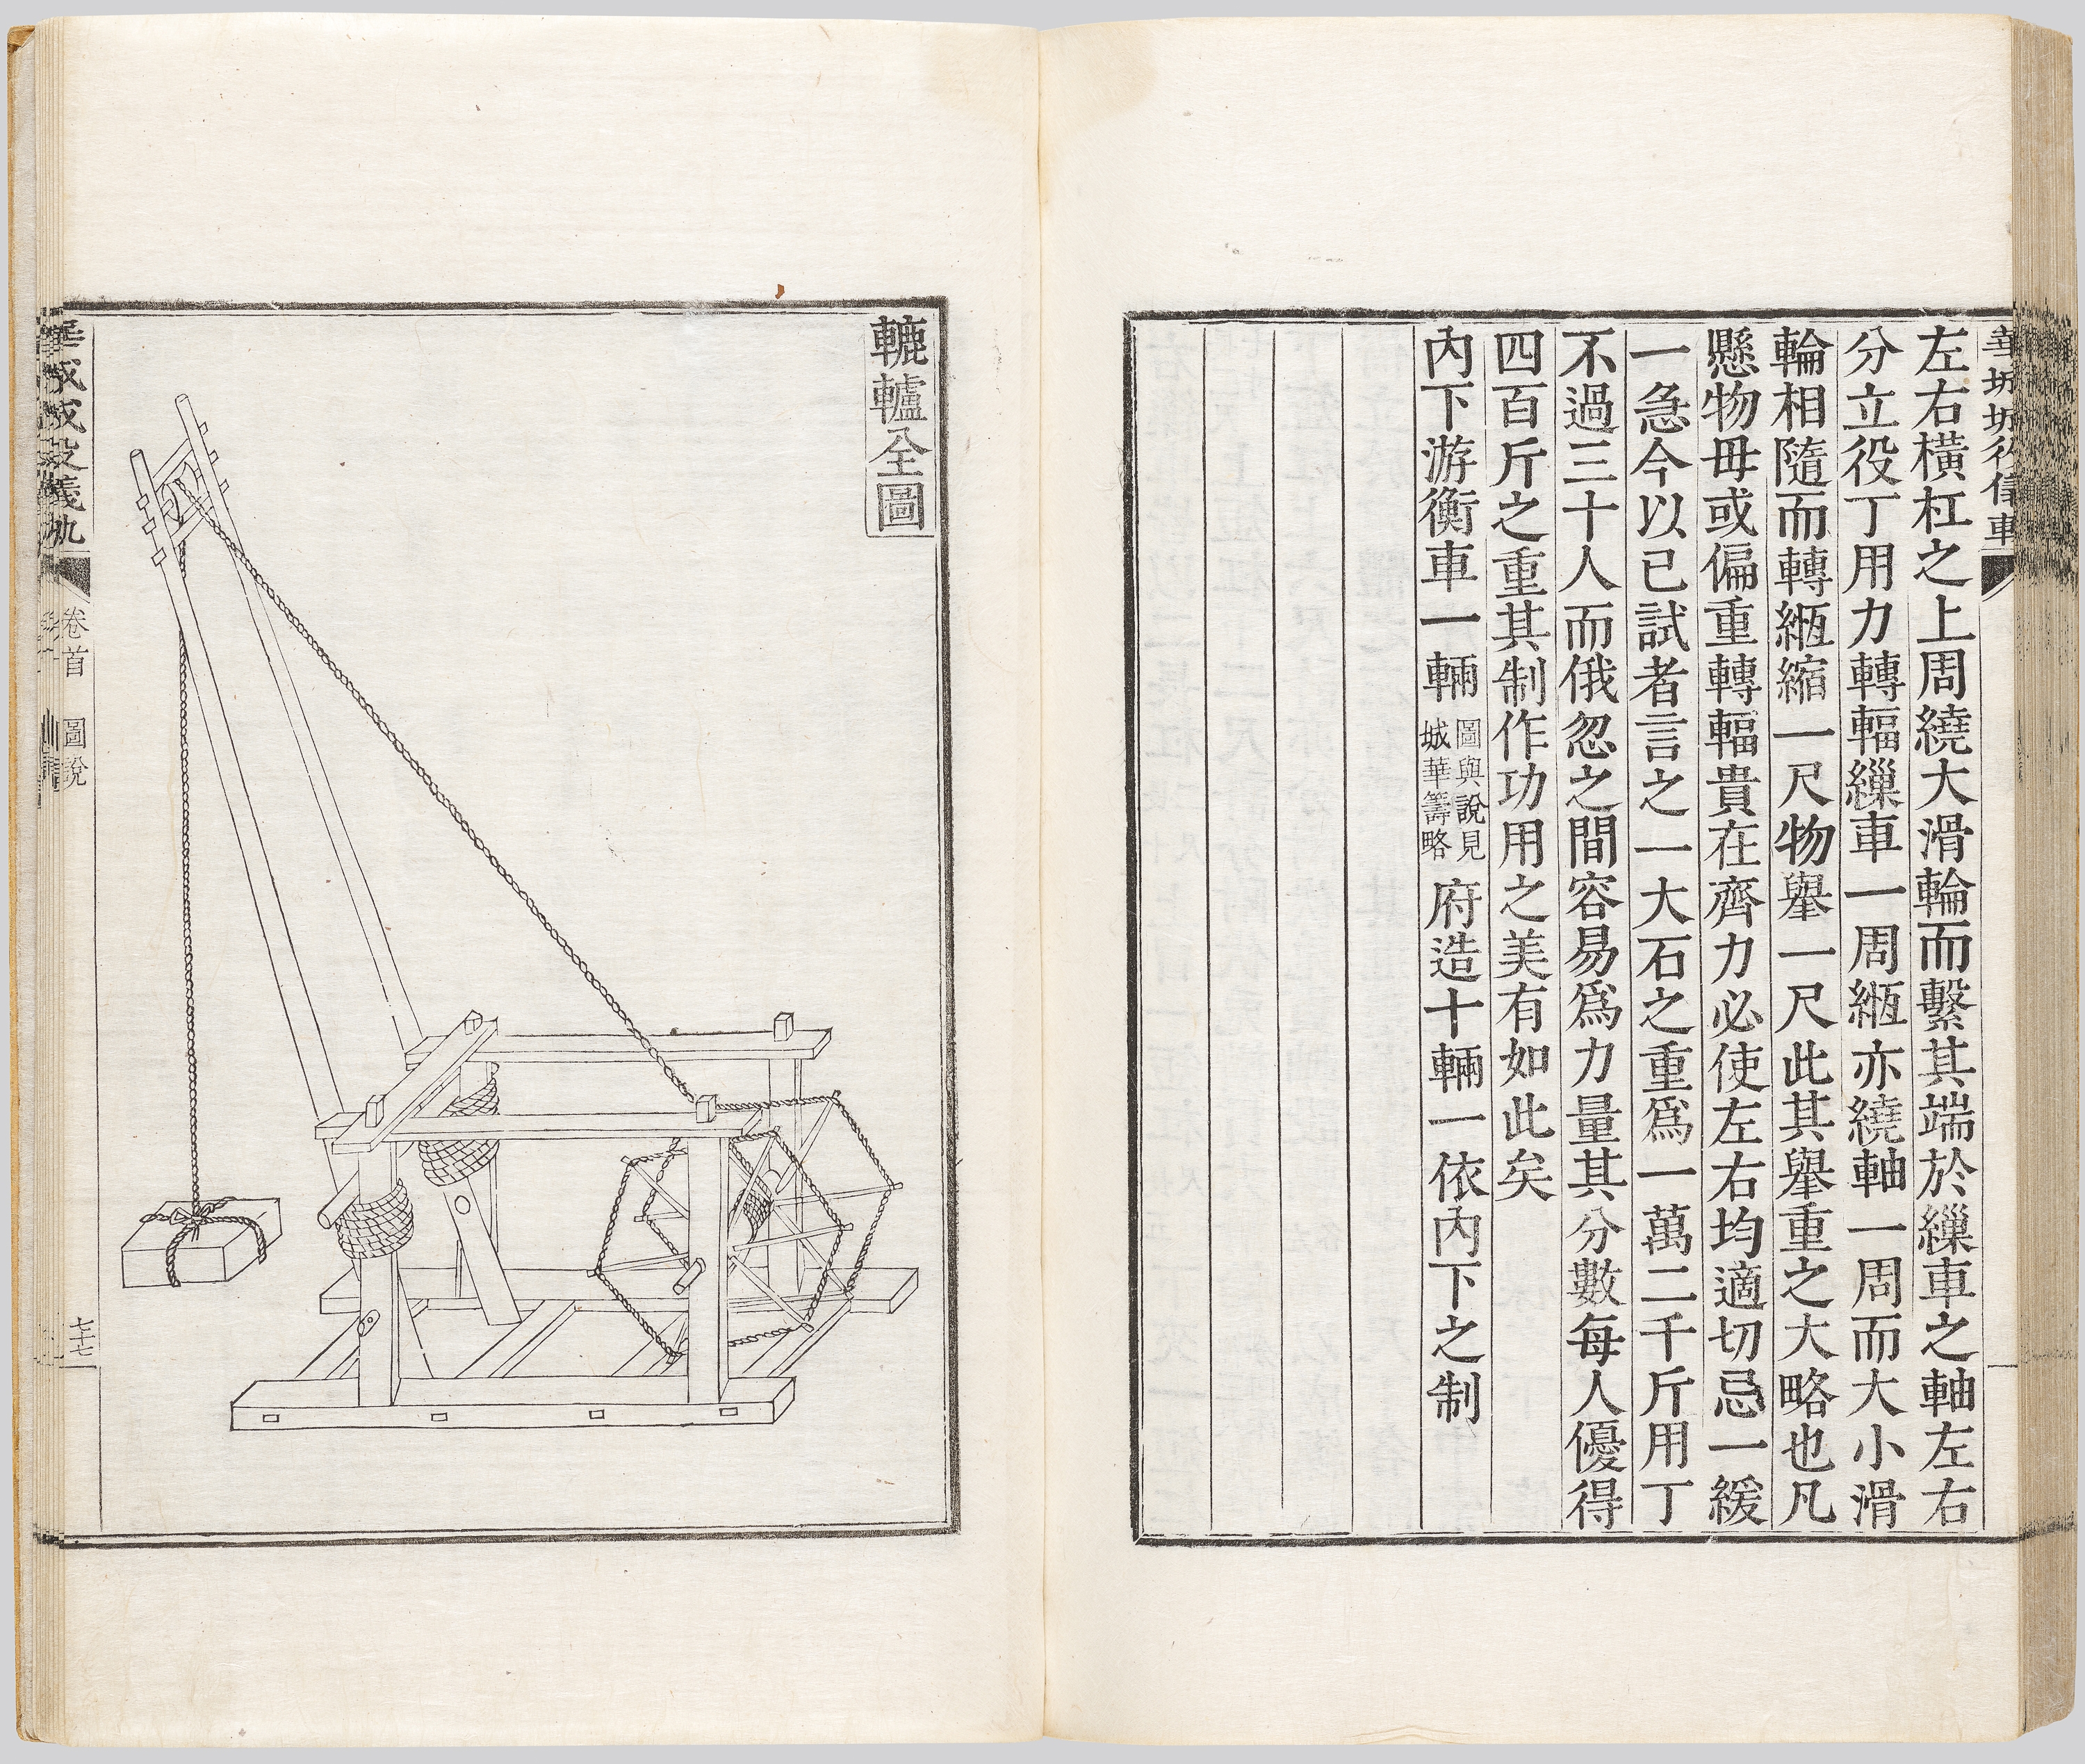 左右橫杠之上周繞大滑輪而繫其端於繅車之軸左右
分立役丁用力轉輻繅車一周緪亦繞軸一周而大小滑
輪相隨而轉緪縮一尺物擧一尺此其擧重之大略也凡
懸物毋或偏重轉輻貴在齊力必使左右均適切忌一緩
一急今以已試者言之一大石之重爲一萬二千斤用丁
不過三十人而俄忽之間容易爲力量其分數每人優得
四百斤之重其制作功用之美有如此矣
內下游衡車一輛
圖與說見
城華籌略
府造十輛一依內下之制
轆轤全圖
卷首 圖說
七十七